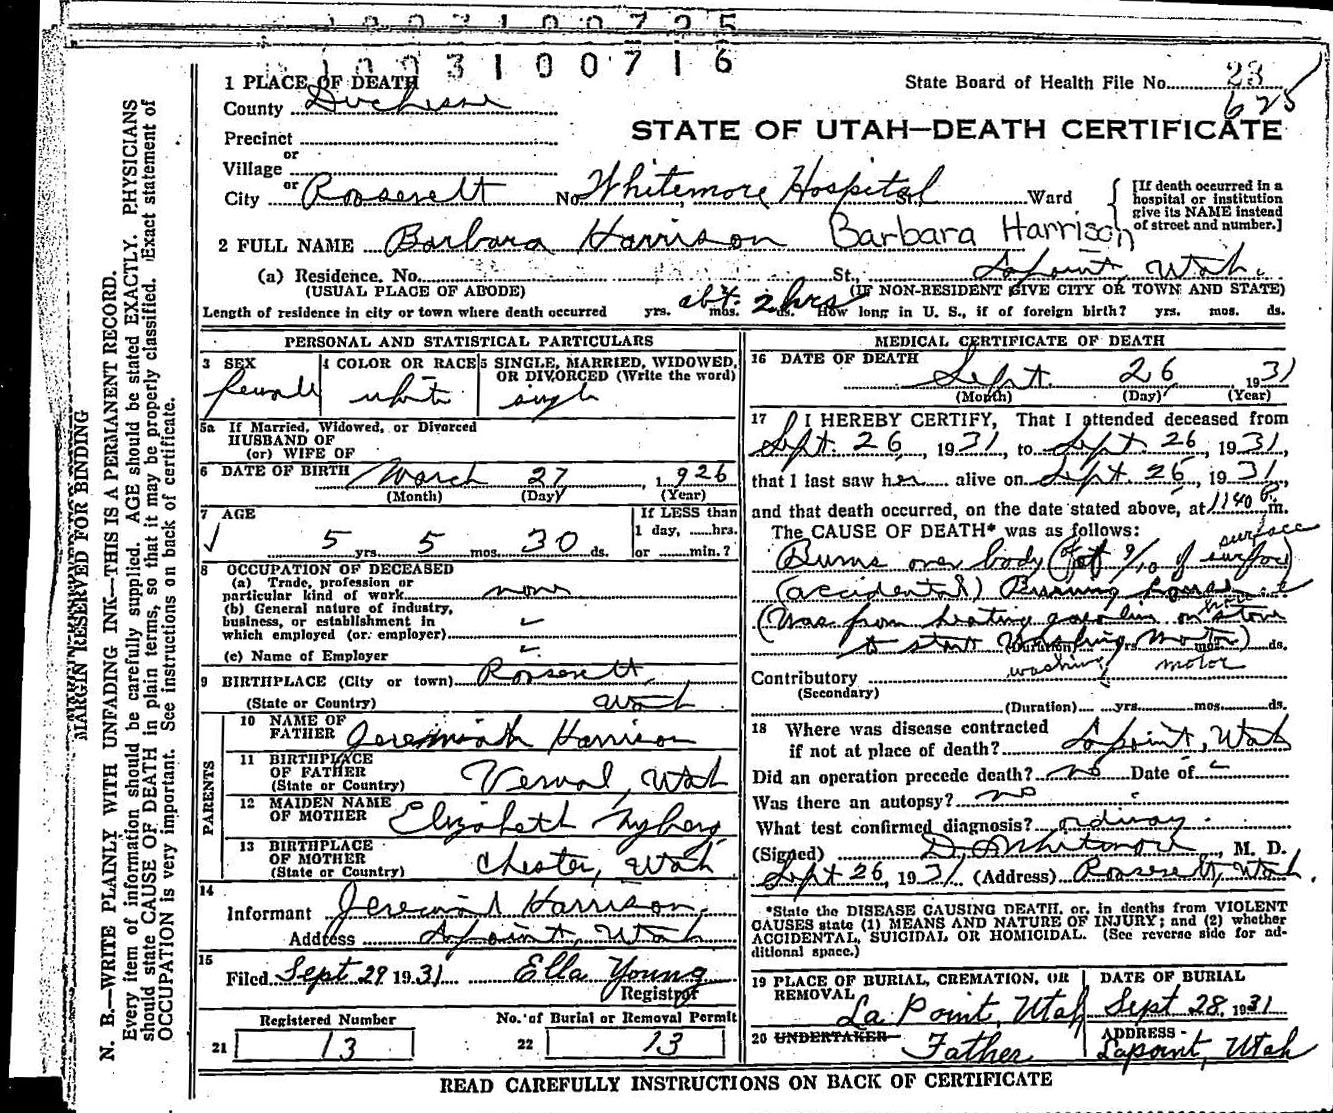 1 0 0 3 1 0 0 7 2 5
1 0 0 3 1 0 0 7 1 6
State Board of Health File No. 23
625
STATE OF UTAH—DEATH CERTIFICATE
1 PLACE OF DEATH
County Duchesne
Precinct
or
Village
or
City Roosevelt No. Whitemore Hospital St. Ward
[If death occurred in a hospital or institution give its NAME instead of street and number.]
2 FULL NAME Barbara Harrison Barbara Harrison
(a) Residence, No. St., Lapoint, Utah.
(USUAL PLACE OF ABODE) (IF NON-RESIDENT GIVE CITY OR TOWN AND STATE)
Length of residence in city or town where death occurred yrs. mos. ds. abt. 2 hrs How long in U. S., if of foreign birth? yrs. mos. ds.
PERSONAL AND STATISTICAL PARTICULARS
3 SEX
female
4 COLOR OR RACE
white
5 SINGLE, MARRIED, WIDOWED, OR DIVORCED (Write the word)
single
5a If Married, Widowed, or Divorced
HUSBAND OF
(or) WIFE OF
6 DATE OF BIRTH March 27, 1926
(Month) (Day) (Year)
7 AGE
5 yrs. 5 mos. 30 ds.
If LESS than
1 day, hrs.
or min.?
8 OCCUPATION OF DECEASED
(a) Trade, profession or
particular kind of work none
(b) General nature of industry,
business, or establishment in
which employed (or employer)
(c) Name of Employer
9 BIRTHPLACE (City or town) Roosevelt
(State or Country) Utah
PARENTS
10 NAME OF FATHER Jeremiah Harrison
11 BIRTHPLACE OF FATHER Vernal, Utah
(State or Country)
12 MAIDEN NAME OF MOTHER Elizabeth Nyberg
13 BIRTHPLACE OF MOTHER Chester, Utah
(State or Country)
14
Informant Jeremiah Harrison
Address Lapoint, Utah
15
Filed Sept 29 1931 Ella Young
Registrar
Registered Number
21 13
No. of Burial or Removal Permit
22 13
MEDICAL CERTIFICATE OF DEATH
16 DATE OF DEATH
Sept. 26, 1931
(Month) (Day) (Year)
17 I HEREBY CERTIFY, That I attended deceased from
Sept. 26, 1931, to Sept. 26, 1931,
that I last saw her alive on Sept. 26, 1931,
and that death occurred, on the date stated above, at 1140 P. m.
The CAUSE OF DEATH* was as follows:
surface
Burns over body (of 9/10 of surface)
(accidental) Burning house
(Was from heating gasoline on stove
to start Washing Motor)
(Duration) yrs. mos. ds.
washing motor
Contributory
(Secondary)
(Duration) yrs. mos. ds.
18 Where was disease contracted
if not at place of death? Lapoint, Utah
Did an operation precede death? no Date of
Was there an autopsy? no
What test confirmed diagnosis? ordinary
(Signed) Whitmore, M. D.
Sept 26, 1931 (Address) Roosevelt, Utah.
*State the DISEASE CAUSING DEATH, or, in deaths from VIOLENT
CAUSES state (1) MEANS AND NATURE OF INJURY; and (2) whether
ACCIDENTAL, SUICIDAL OR HOMICIDAL. (See reverse side for additional space.)
19 PLACE OF BURIAL, CREMATION, OR REMOVAL
La Point, Utah
DATE OF BURIAL
Sept 28, 1931
20 UNDERTAKER
Father
ADDRESS
Lapoint, Utah
READ CAREFULLY INSTRUCTIONS ON BACK OF CERTIFICATE
MARGIN RESERVED FOR BINDING
N. B.—WRITE PLAINLY WITH UNFADING INK—THIS IS A PERMANENT RECORD.
Every item of information should be carefully supplied. AGE should be stated EXACTLY. PHYSICIANS
should state CAUSE OF DEATH in plain terms, so that it may be properly classified. Exact statement of
OCCUPATION is very important. See instructions on back of certificate.